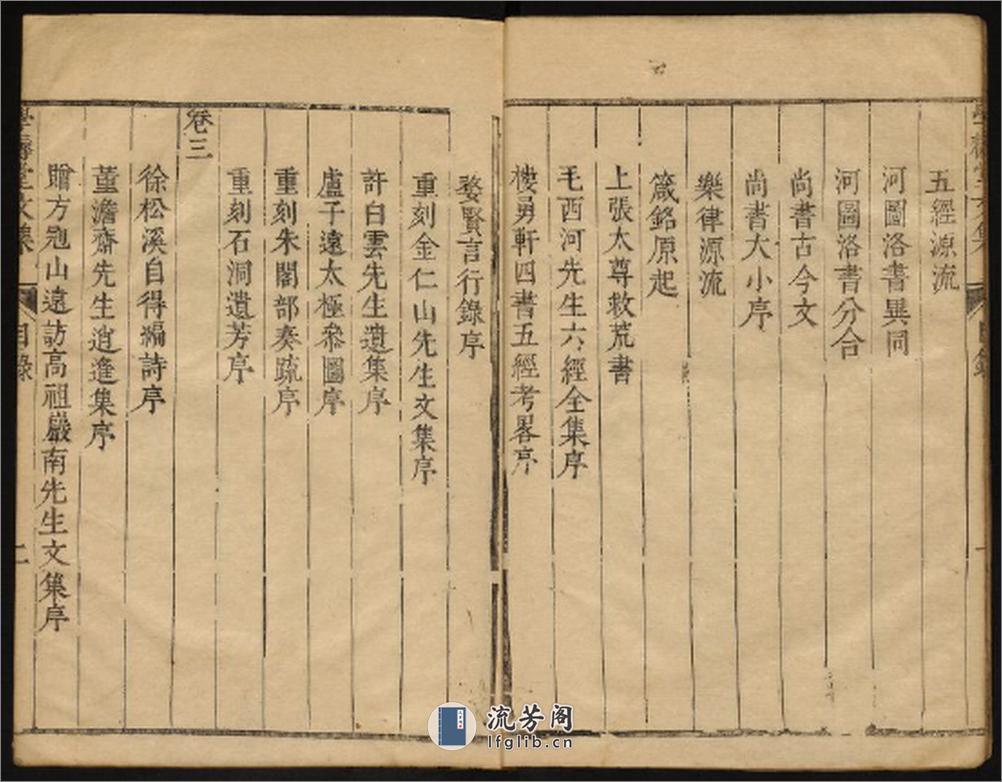 五經源流
河圖洛書異同
河圖洛書分合
尚書古今文
尚書大小序
樂律源流
箴銘原起
上張太尊救荒書
毛西河先生六經全集序
樓勇軒四書五經考畧序
婺賢言行錄序
重刻金仁山先生文集序
許白雲先生遺集序
盧子遠太極叅圖序
重刻朱閣部奏疏序
重刻石洞遺芳序
卷三
徐松溪自得編詩序
董澹齋先生逍遙集序
贈方冠山遠訪高祖巖南先生文集序
目錄
二
流芳阁
lfglib.cn